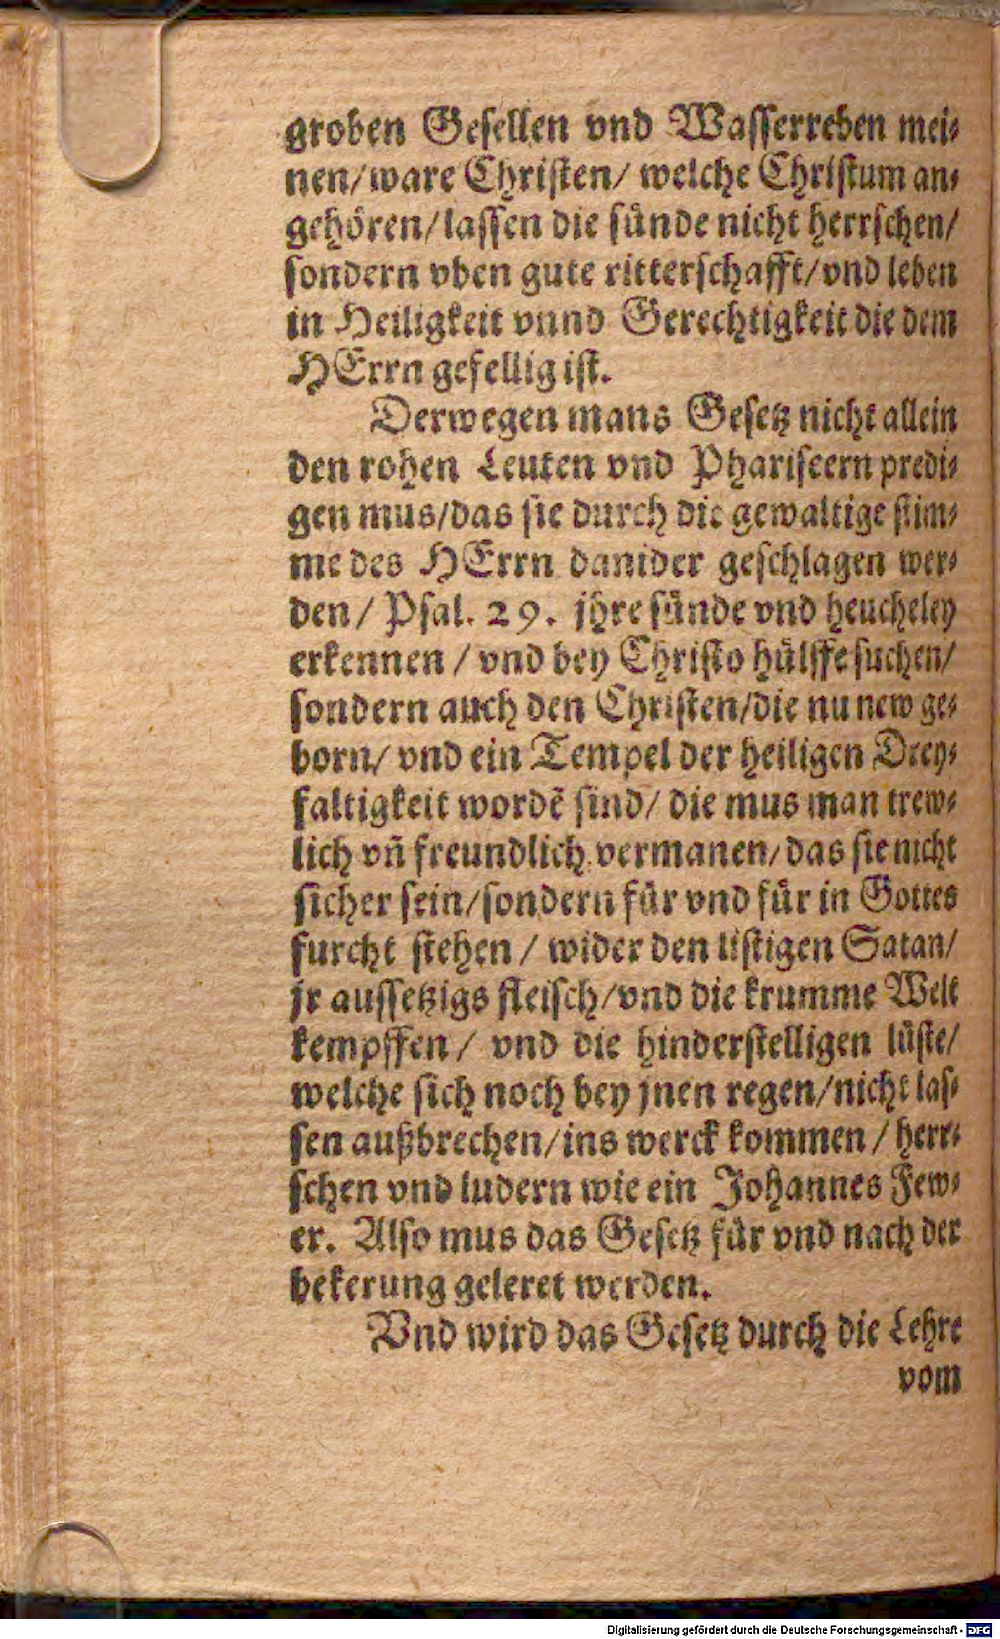 groben Gesellen vnd Wasserreben mei⸗
nen/ware Christen/ welche Christum an⸗
gehören/lassen die sünde nicht herrschen/
sondern vben gute ritterschafft/vnd leben
in Heiligkeit vnnd Gerechtigkeit die dem
HErrn gefellig ist.
Derwegen mans Gesetz nicht allein
den rohen Leuten vnd Phariseern predi⸗
gen mus/das sie durch die gewaltige stim⸗
me des HErrn danider geschlagen wer⸗
den/ Psal. 29. jhre sünde vnd heucheley
erkennen / vnd bey Christo hülffe suchen/
sondern auch den Christen/die nu new ge⸗
born/ vnd ein Tempel der heiligen Drey⸗
faltigkeit wordē sind/ die mus man trew⸗
lich vñ freundlich vermanen/das sie nicht
sicher sein/sondern für vnd für in Gottes
furcht stehen / wider den listigen Satan/
jr aussetzigs fleisch/vnd die krumme Welt
kempffen/ vnd die hinderstelligen lüste/
welche sich noch bey jnen regen/nicht las⸗
sen außbrechen/ins werck kommen / herr⸗
schen vnd ludern wie ein Johannes Few⸗
er. Also mus das Gesetz für vnd nach der
bekerung geleret werden.
Vnd wird das Gesetz durch die Lehre
vom
Digitalisierung gefördert durch die Deutsche Forschungsgemeinschaft - DFG